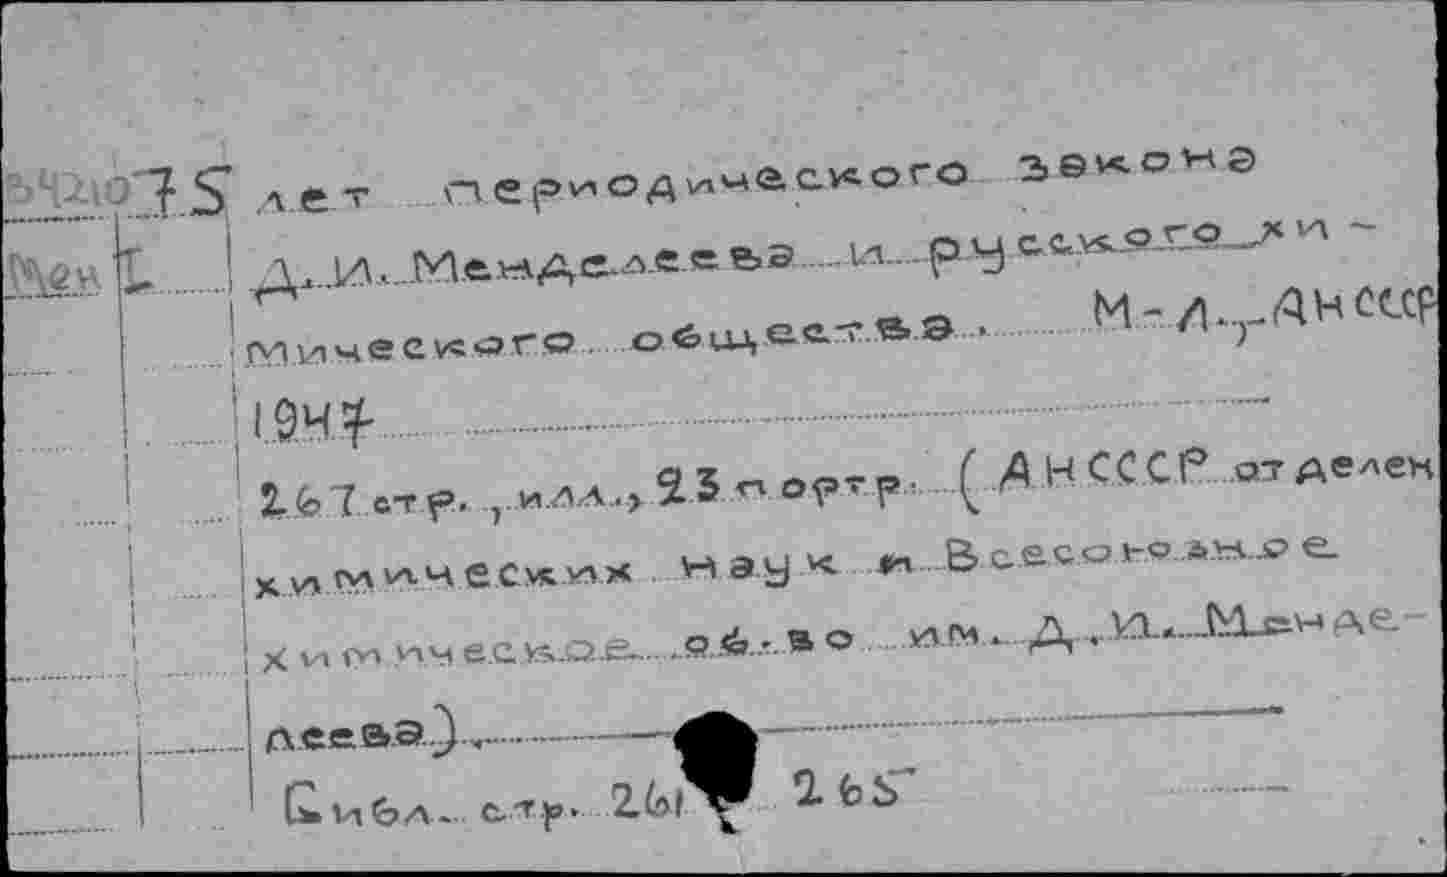 75 лет периодического закона
Д.И. Менделеева и русского хи-
мического общества. М-Л., АН СССР
1947
267 стр., илл., 23 портр. (АН СССР отделен
химических наук и Всесоюзное
химическое об-во им. Д.И. Менде-
леева).
Библ. стр. 261 265